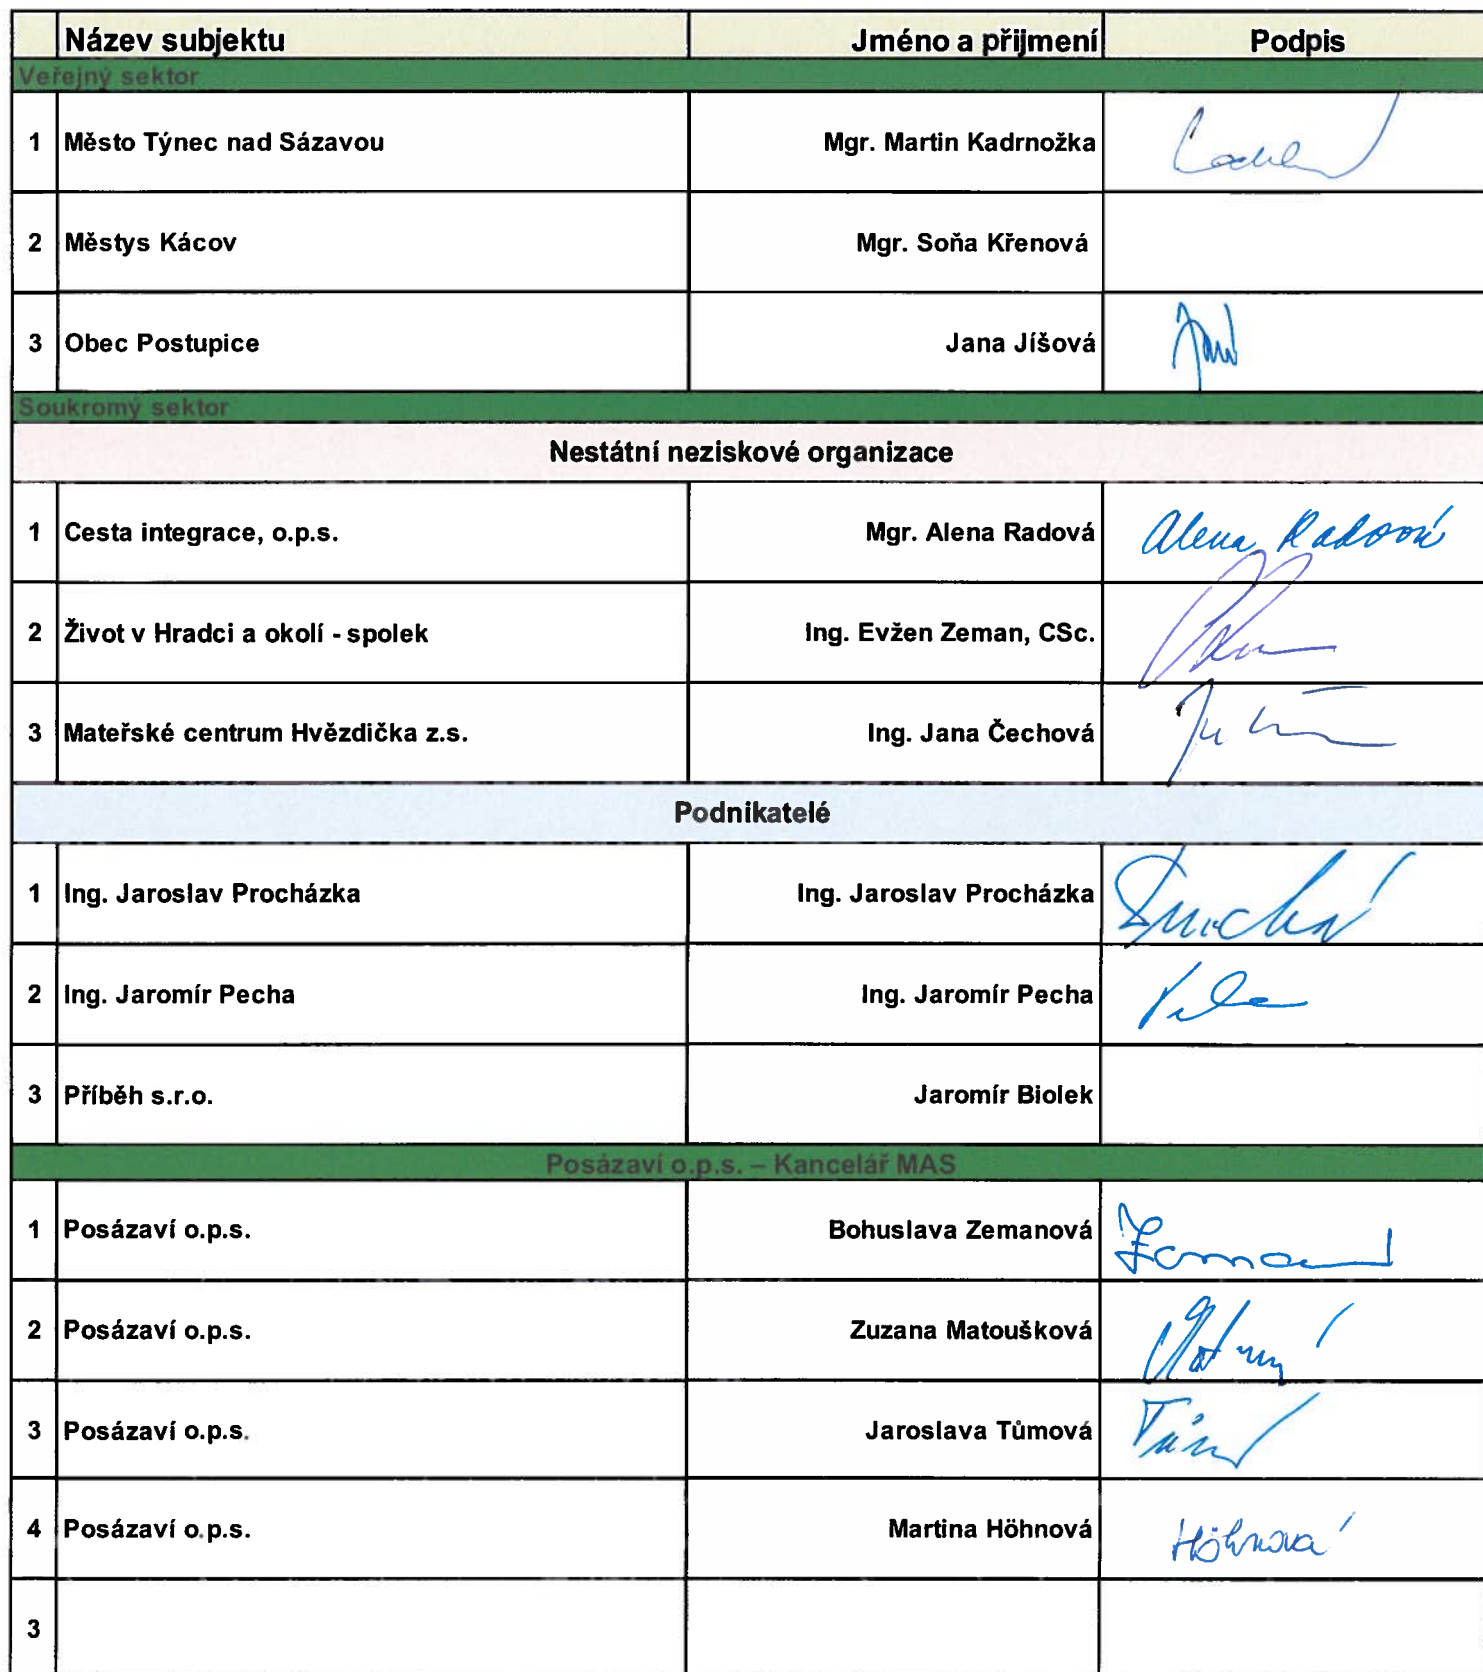 Název subjektu Jméno a přijmení Podpis
Veřejný sektor
1 Město Týnec nad Sázavou Mgr. Martin Kadrnožka
2 Městys Kácov Mgr. Soňa Křenová
3 Obec Postupice Jana Jíšová
Soukromý sektor
Nestátní neziskové organizace
1 Cesta integrace, o.p.s. Mgr. Alena Radová Alena Radová
2 Život v Hradci a okolí - spolek Ing. Evžen Zeman, CSc.
3 Mateřské centrum Hvězdička z.s. Ing. Jana Čechová
Podnikatelé
1 Ing. Jaroslav Procházka Ing. Jaroslav Procházka
2 Ing. Jaromír Pecha Ing. Jaromír Pecha
3 Příběh s.r.o. Jaromír Biolek
Posázaví o.p.s. – Kancelář MAS
1 Posázaví o.p.s. Bohuslava Zemanová
2 Posázaví o.p.s. Zuzana Matoušková
3 Posázaví o.p.s. Jaroslava Tůmová
4 Posázaví o.p.s. Martina Höhnová Höhnová
3